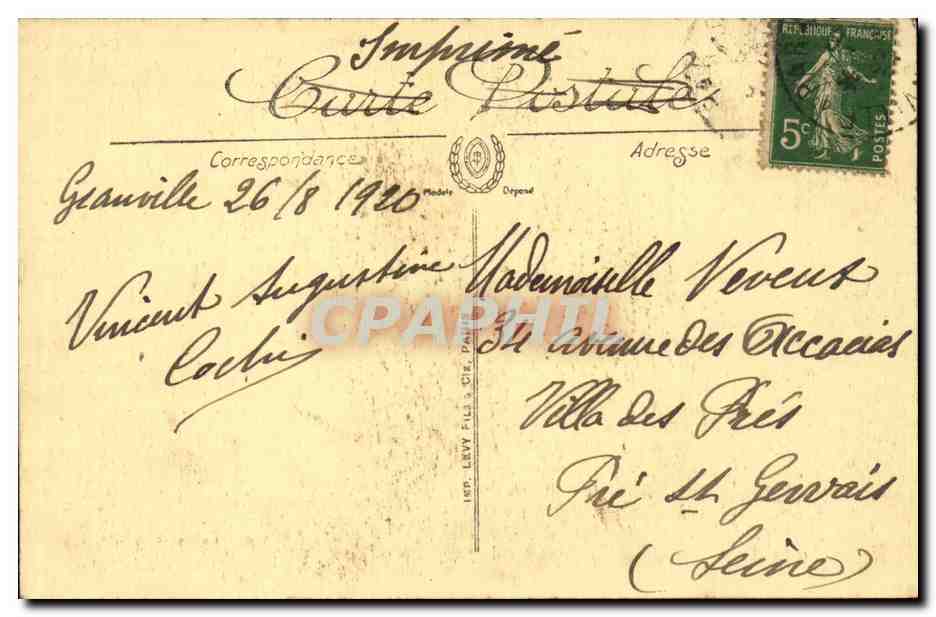 Imprimé
Carte Postale
RÉPUBLIQUE FRANÇAISE
5c
POSTES
Correspondance
Adresse
Modèle Déposé
Granville 26/8 1920
Vincent Augustine
Mademoiselle Vevent
34 avenue des Accacias
Villa des Prés
Pré St Gervais
(Seine)
IMP. LEVY FILS & CIE, PARIS
CPAPHIL